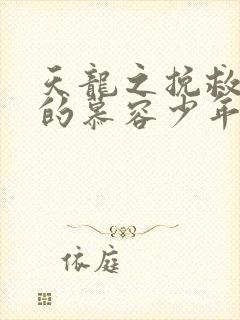 天龍之挽救
的慕容少年
依庭